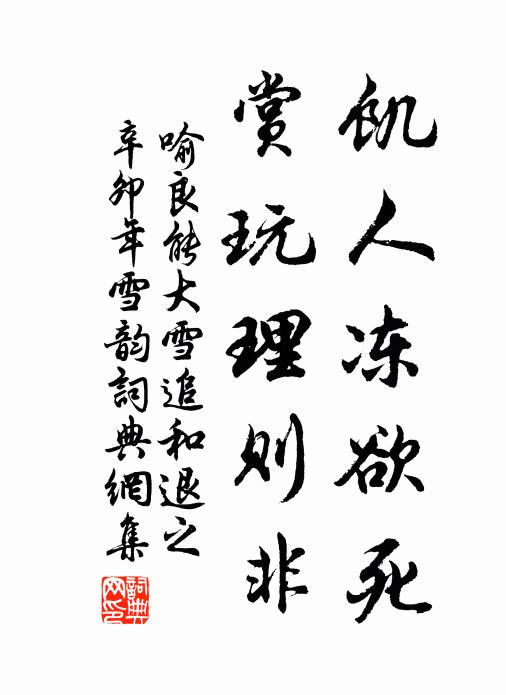 飢人冻欲死
赏玩理则非
喻良能大雪追和退之
辛卯年雪韵詞典網集
詞典网印